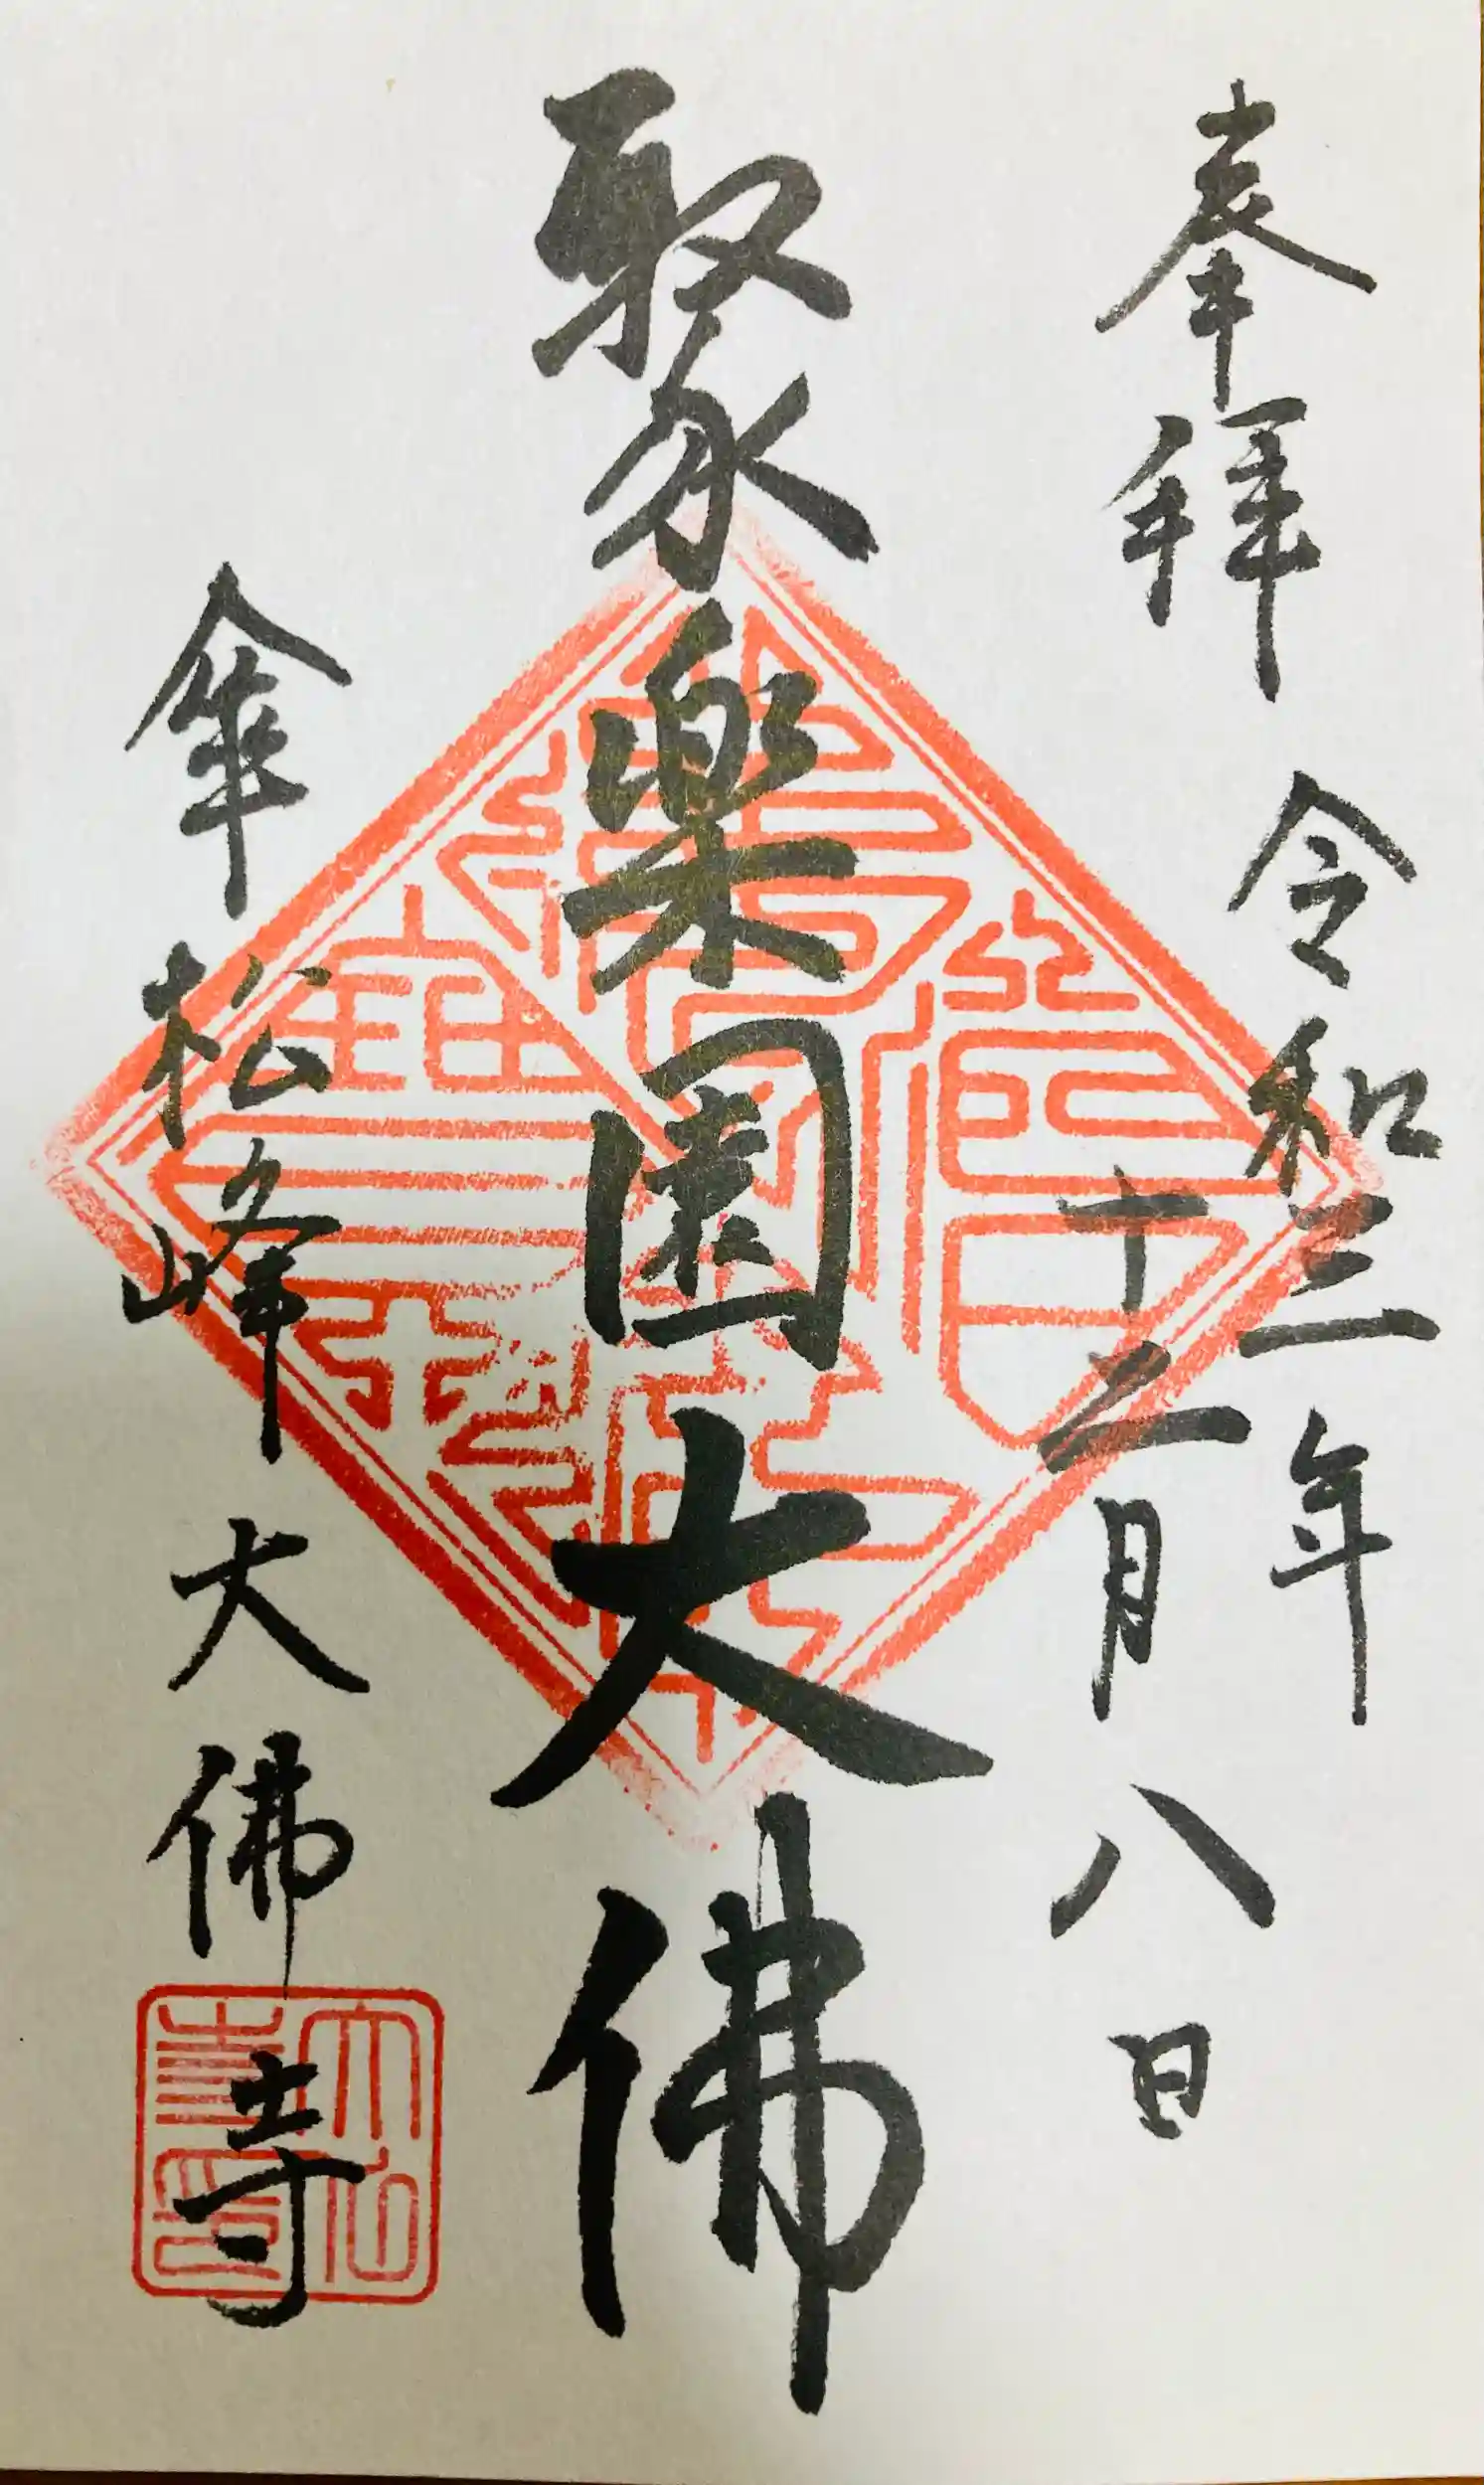 奉拜 令和三年
十二月八日
聚楽園大佛
傘松峰 大佛寺